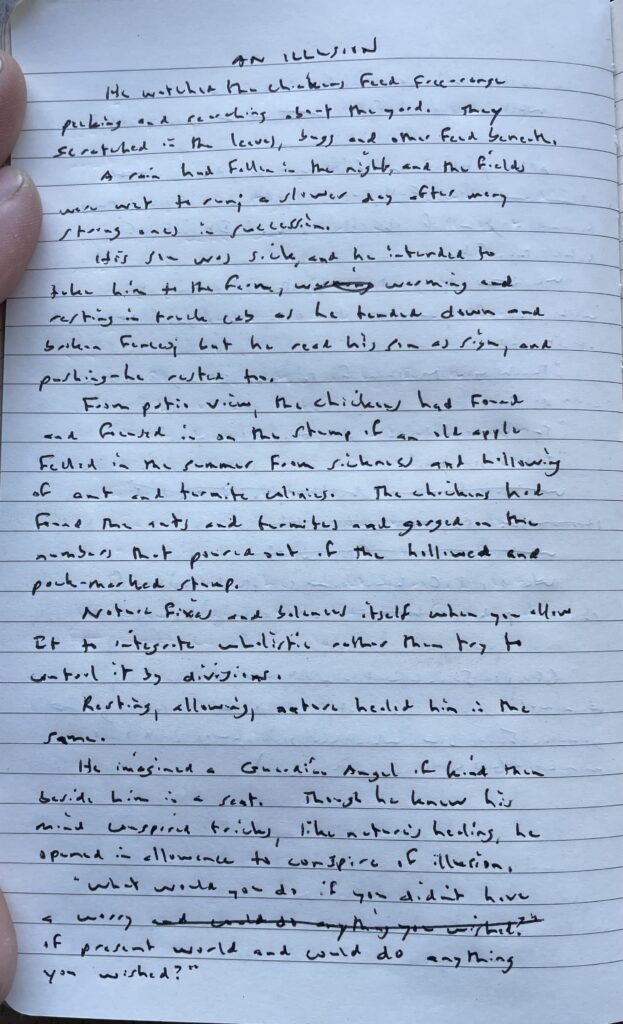 AN ILLUSION
He watched the chickens feed free-range
pecking and searching about the yard. They
scratched in the leaves, bugs and other feed beneath.
A rain had fallen in the night, and the fields
were wet to run; a slower day after many
strong ones in succession.
His son was sick, and he intended to
take him to the farm, warming and
resting in truck cab as he tended down and
broken fences; but he read his son as sign, and
pushing—he rested too.
From patio view, the chickens had found
and focused in on the stump of an old apple
felled in the summer from sickness and hollowing
of ant and termite colonies. The chickens had
found the ants and termites and gorged on the
numbers that poured out of the hollowed and
pock-marked stump.
Nature fixes and balances itself when you allow
it to integrate wholistic rather than try to
control it by divisions.
Resting, allowing, nature healed him in the
same.
He imagined a Guardian Angel of kind then
beside him in a seat. Though he knew his
mind conspired tricks, like nature's healing, he
opened in allowance to conspire of illusion.
"What would you do if you didn't have
a worry and could do anything you wished?"
of present world and could do anything
you wished?"